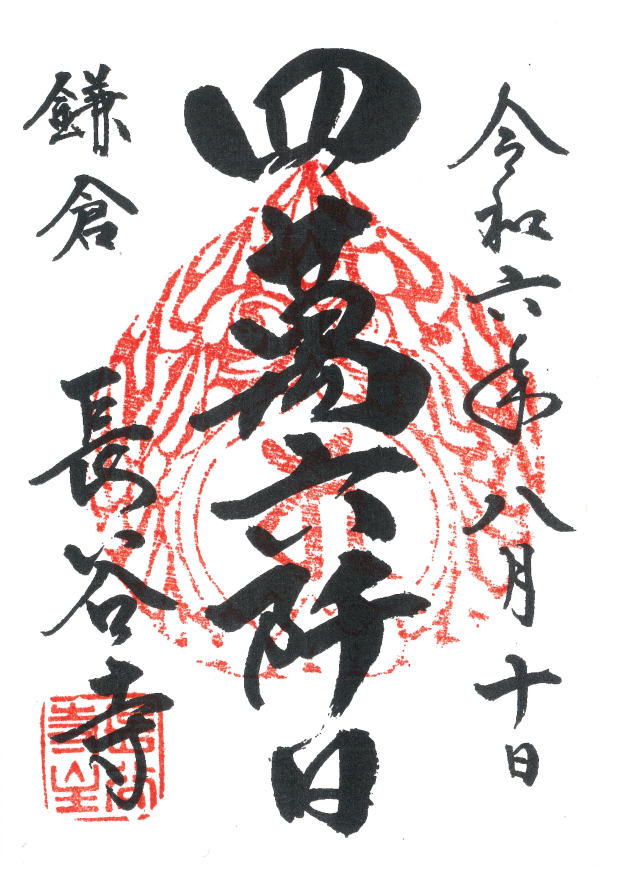 令和六年八月十日
四萬六阡日
鎌倉 長谷寺